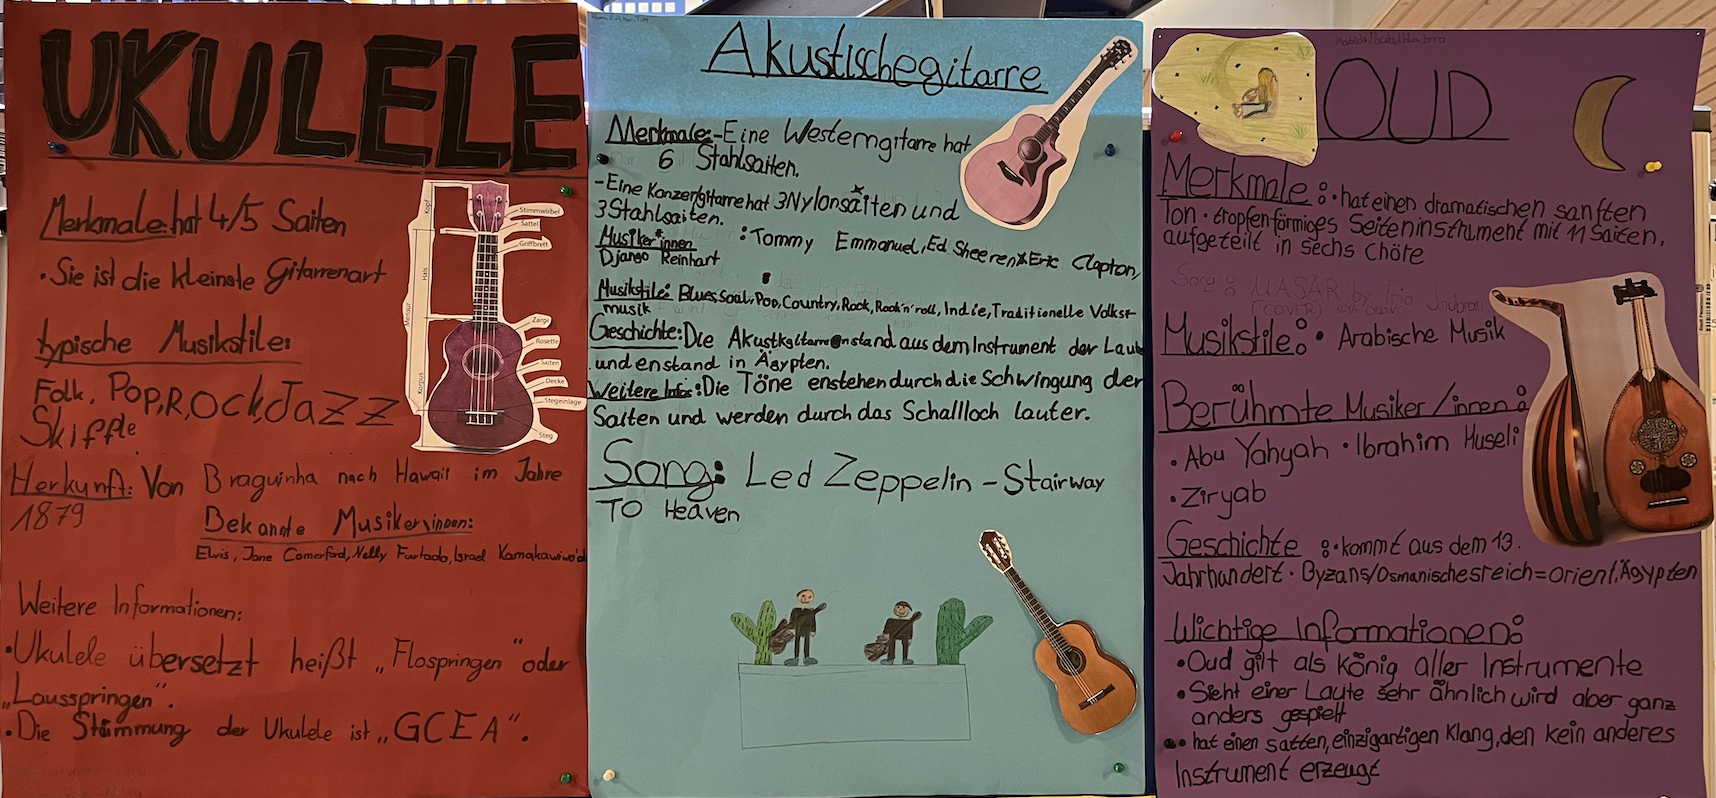 UKULELE
Merkmale: hat 4/5 Saiten
• Sie ist die kleinste Gitarrenart
typische Musikstile:
Folk, Pop, R, Ock, Jazz
Skiffle
Herkunft: Von Braguinha nach Hawaii im Jahre
1879
Bekannte Musiker/innen:
Elvis, Jane Comerford, Nelly Furtado, Israel Kamakawiwo'o
Weitere Informationen:
• Ukulele übersetzt heißt „Flospringen" oder
„Lausspringen".
• Die Stimmung der Ukulele ist „GCEA".
Kopf
Hals
Mensur
Korpus
Stimmwirbel
Sattel
Griffbrett
Zarge
Rosette
Saiten
Decke
Stegeinlage
Steg
Akustischegitarre
Merkmale: - Eine Westerngitarre hat
6 Stahlsaiten.
- Eine Konzertgitarre hat 3 Nylonsaiten und
3 Stahlsaiten.
Musiker*innen : Tommy Emmanuel, Ed Sheeran, Eric Clapton,
Django Reinhart
Musikstile: Blues, Soal, Pop, Country, Rock, Rock'n'roll, Indie, Traditionelle Volkst
musik
Geschichte: Die Akustkgitarre enstand aus dem Instrument der Laute
und enstand in Ägypten.
Weitere Infos: Die Töne enstehen durch die Schwingung der
Saiten und werden durch das Schallloch lauter.
Song: Led Zeppelin - Stairway
TO Heaven
OUD
Merkmale : • hat einen dramatischen sanften
Ton • tropfenförmiges Seiteninstrument mit 11 Saiten,
aufgeteilt in sechs Chöre
Song : MASAR by Trio Joubran
(COVER)
Musikstile: • Arabische Musik
Berühmte Musiker/innen:
• Abu Yahyah • Ibrahim Museli
• Ziryab
Geschichte : • kommt aus dem 13.
Jahrhundert • Byzans/Osmanischesreich = Orient, Ägypten
Wichtige Informationen:
• Oud gilt als könig aller Instrumente
• Sieht einer Laute sehr ähnlich wird aber ganz
anders gespielt
• hat einen satten, einzigartigen Klang, den kein anderes
Instrument erzeugt